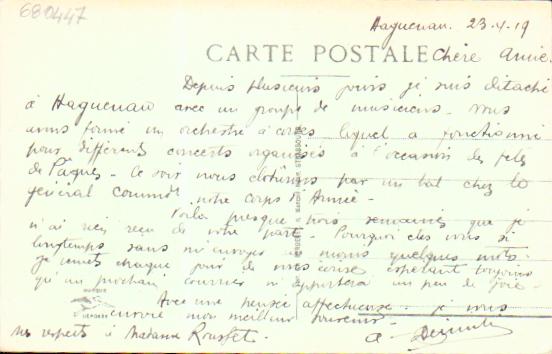 680447
Haguenau. 23-4-19
CARTE POSTALE
Chère Amie.
Depuis plusieurs jours je suis détaché
à Haguenau avec un groupe de musiciens. nous
avons formé un orchestre à cordes lequel a fonctionné
pour différents concerts organisés à l'occasion des fêtes
de Pâques. Ce soir nous clôturons par un bal chez le
général command. notre corps d'Armée.
Voilà presque trois semaines que je
n'ai rien reçu de votre part. Pourquoi êtes vous si
longtemps sans m'envoyer au moins quelques mots.
chaque jour de vous espérant toujours
qu'un prochain courrier m'apportera un peu de joie.
Avec une pensée affectueuse je vous
envoie mon meilleur souvenir.
mes respects à Madame Rousset.